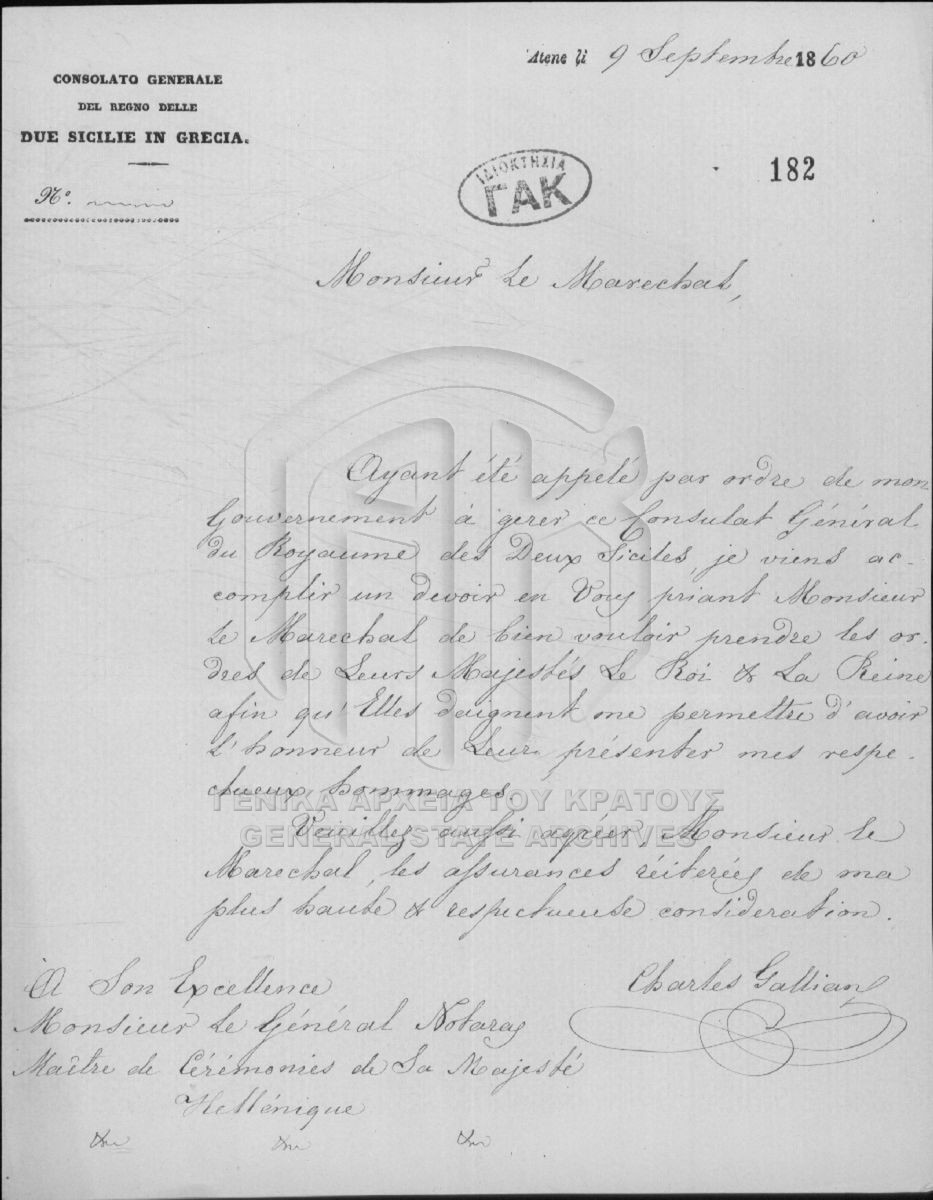 Atene li 9 Septembre 1860
CONSOLATO GENERALE
DEL REGNO DELLE
DUE SICILIE IN GRECIA.
N°.
ΙΔΙΟΚΤΗΣΙΑ
ΓΑΚ
182
Monsieur Le Marechal,
Ayant été appelé par ordre de mon
Gouvernement à gerer ce Consulat Général
du Royaume des Deux Siciles, je viens ac-
complir un devoir en Vous priant Monsieur
Le Marechal de bien vouloir prendre les or-
dres de Leurs Majestés Le Roi & La Reine
afin qu'Elles daignent me permettre d'avoir
l'honneur de Leur présenter mes respe-
ctueux hommages.
Veuillez aussi agréer Monsieur le
Marechal, les assurances réiterées de ma
plus haute & respectueuse consideration.
ΓΕΝΙΚΑ ΑΡΧΕΙΑ ΤΟΥ ΚΡΑΤΟΥΣ
GENERAL STATE ARCHIVES
Charles Gallian
A Son Excellence
Monsieur Le Général Notaras
Maître de Cérémonies de Sa Majesté
Hellénique